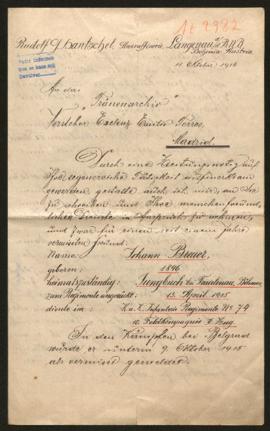 Rudolf J. Hantschel, Langenau a/ B.N.B.
Bohemia Austria
11. Oktober 1916
An das
"Tränenarchiv"
Exzellenz Emilio Torres
Madrid.
Durch eine Zeitungsnotiz auf
Tätigkeit aufmerksam
geworden, gestatte auch ich mir, an Sie
zu schreiben und Ihre menschenfreund-
liche Dienste in Anspruch zu nehmen,
und zwar für einen seit einem Jahre
vermissten Freund.
Name: Johann Breuer,
geboren: 1896
heimatszuständig: Jungbuch bei Trautenau, Böhmen
zum Regimente eingerückt: 15. April 1915
diente im: K. u. K. Infanterie Regimente No. 74
Feldkompagnie Zug.
In den Kämpfen bei Belgrad
wurde er unterm 9. Oktober 1915
als vermisst gemeldet.